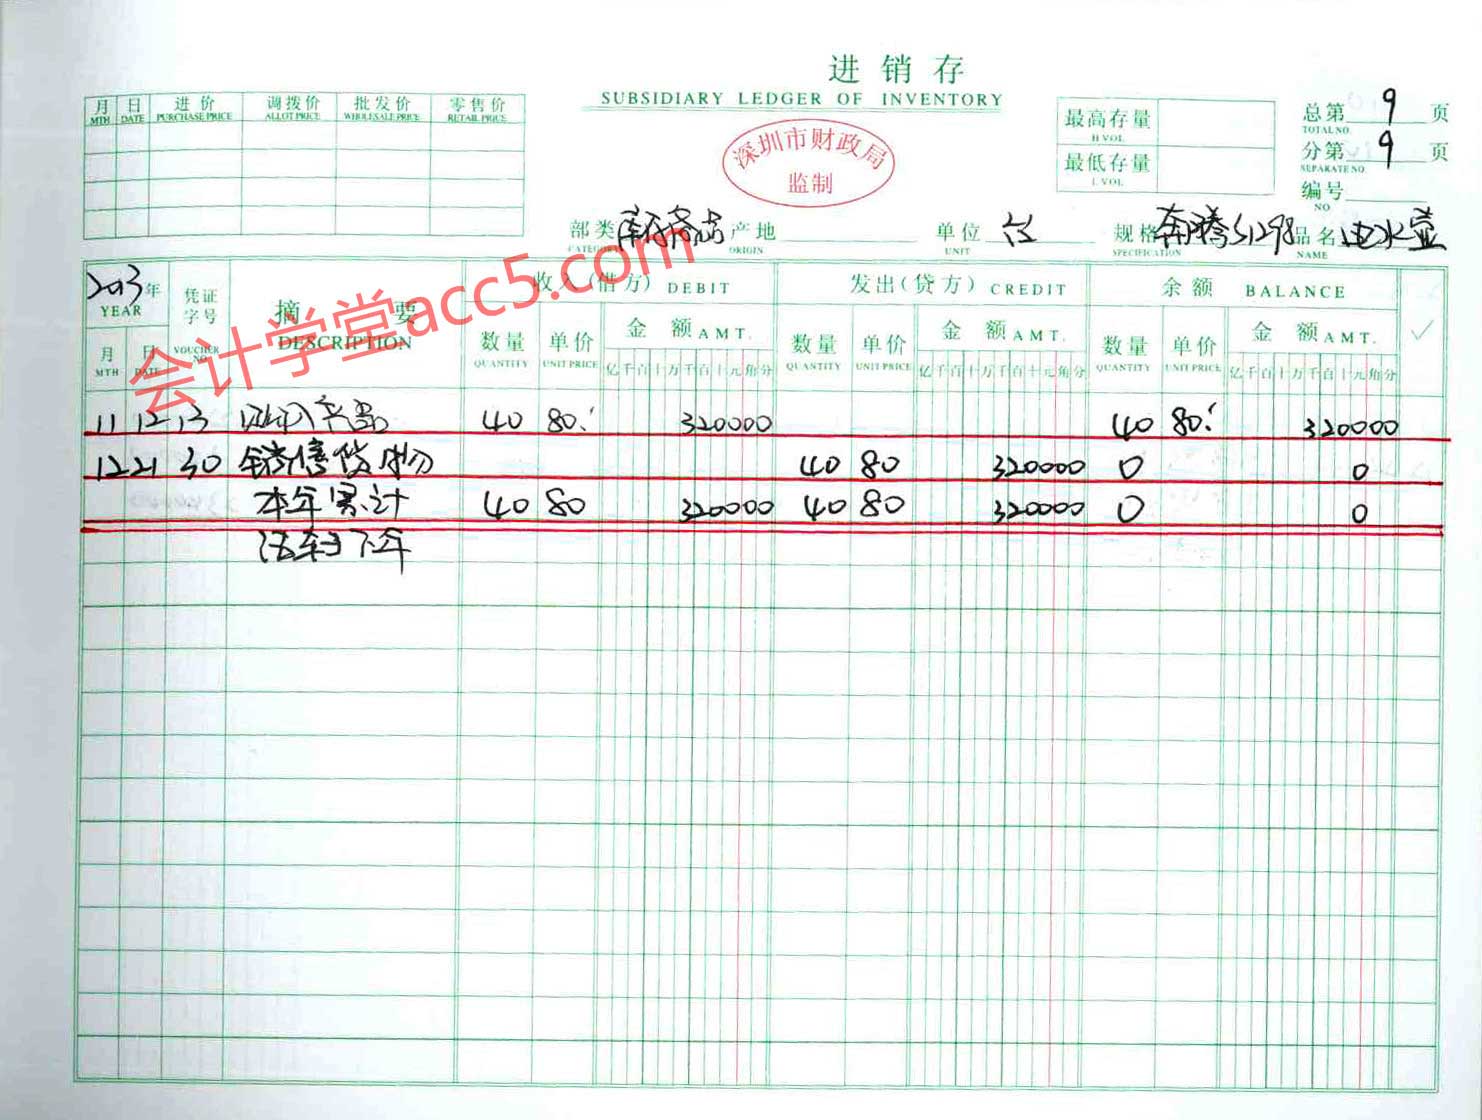 进销存
SUBSIDIARY LEDGER OF INVENTORY
深圳市财政局
监制
月 日 进价 调拨价 批发价 零售价
MTH DATE PURCHASE PRICE ALLOT PRICE WHOLESALE PRICE RETAIL PRICE
最高存量
H VOL
最低存量
L VOL
总第 9 页
TOTAL NO
分第 9 页
SEPARATE NO
编号
NO
部类 库存商品 产地 单位 台 规格 奔腾S1298 品名 电水壶
CATEGORY ORIGIN UNIT SPECIFICATION NAME
会计学堂acc5.com
2013年 凭证字号 摘要 收入(借方) DEBIT 发出(贷方) CREDIT 余额 BALANCE
YEAR VOUCHER NO DESCRIPTION
月 日 数量 单价 金额 AMT. 数量 单价 金额 AMT. 数量 单价 金额 AMT.
MTH DATE QUANTITY UNIT PRICE 亿千百十万千百十元角分 QUANTITY UNIT PRICE 亿千百十万千百十元角分 QUANTITY UNIT PRICE 亿千百十万千百十元角分
11 12 13 40 80 320000 40 80 320000
12 21 30 销售货物 40 80 320000 0 0
本年累计 40 80 320000 40 80 320000 0 0
结转下年